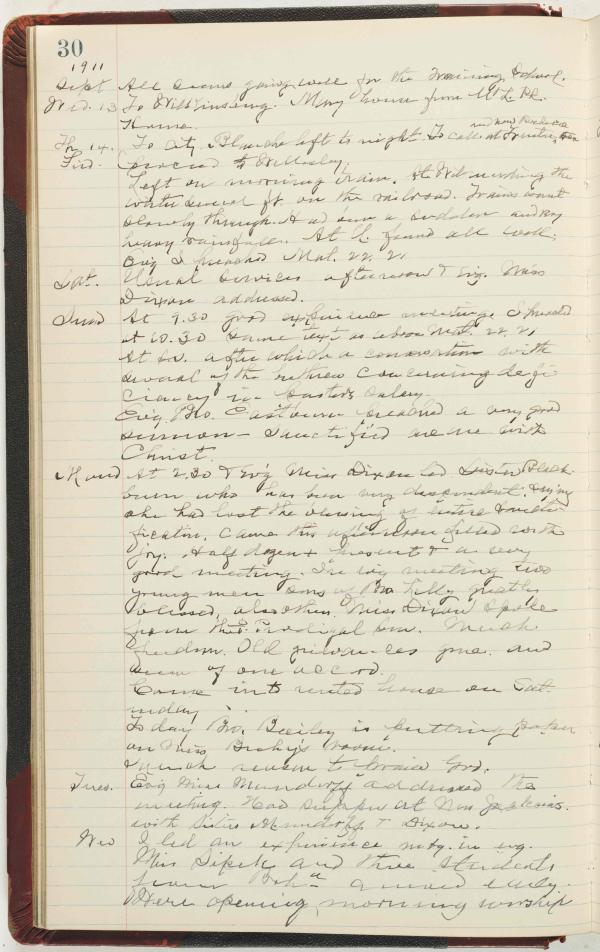 30
1911
Sept. All seems going well for the Training School.
Wed. 13 To Wilkinsburg. Mary home from Mt. L. Pk.
Home.
Th. 14. To City. Blanche left to night. To call at
and now
Frid. proceed to Wellesley.
Left on morning train. At
water several ft. on the railroad. Trains went
slowly through. Had been a sudden and very
heavy rainfall. At L. found all well.
Evg I preached Mat. 22. 21
Sat. Usual services afternoon & Evg. Miss
Dixon addressed.
Sund At 9.30 good experience meeting. I preached
at 10.30 same text as above Mat. 22. 21
At
after which a conversation with
several of the brethren concerning defi-
ciency in Pastor's salary.
Evg. Bro. Eastburn preached a very good
sermon - Sanctified are we with
Christ.
Mond At 2.30 & Evg Miss Dixon led Sister Black-
burn who has been very despondent, & saying
she had lost the blessing of entire sancti-
fication, came this afternoon filled with
joy. Half dozen + present & a very
good meeting. In evg meeting two
young men sons of Bro. Lilly greatly
blessed, also others. Miss Dixon spoke
from the Prodigal Son. Much
freedom. Old grievances gone. and
seem of one accord.
Came into rented house on Sat-
urday.
Today Bro. Beiley is putting paper
on Miss
room.
Much reason to praise God.
Tues. Evg Miss Mundorff addressed the
meeting. Had supper at
with Sisters Mundorff & Dixon.
Wed I led an experience mtg. in evg.
Miss Sipek and three students
from
arrived early.
Were opening morning worship